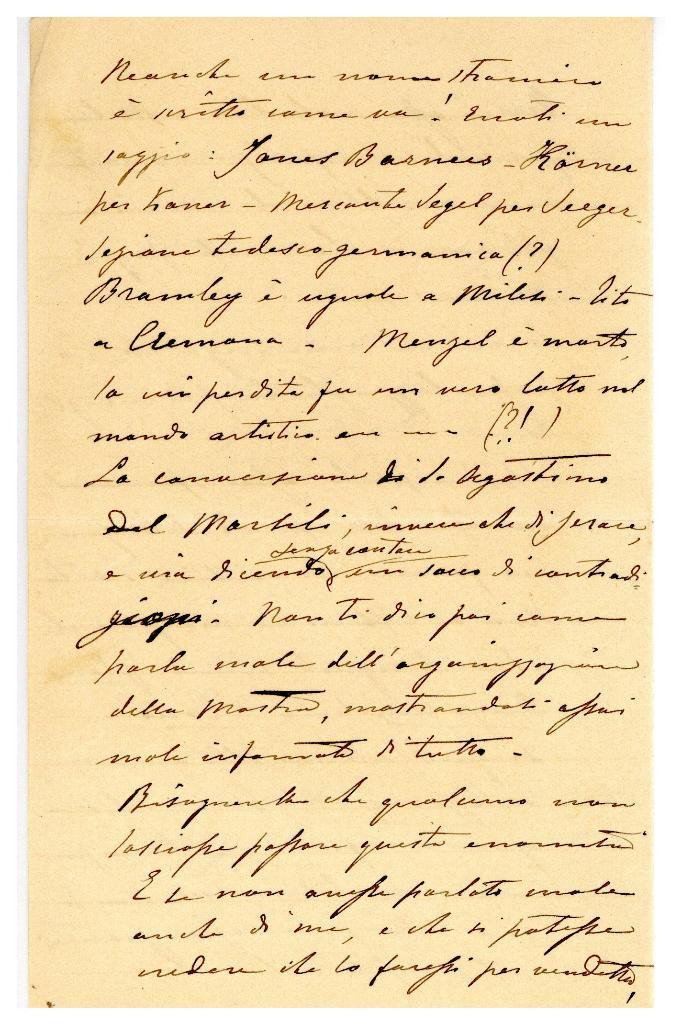 Neanche un nome straniero
è scritto come va! Eccoti un
saggio: Jones Barnees - Körner
per Koner - Mercante Segel per Seeger.
Sezione tedesco-germanica (?)
Bramley è uguale a Milesi - Tito
a Cremona - Menzel è morto,
la cui perdita fu un vero lutto nel
mondo artistico. (?!)
La conversione di S. Agostino
del Marsili, invece che di Jerace,
e via dicendo, senza contare un sacco di contradi-
zioni. Non ti dico poi come
parla male dell'organizzazione
della Mostra, mostrandosi assai
male informato di tutto -
Bisognerebbe che qualcuno non
lasciasse passare queste enormità
E se non avesse parlato male
anche di me, e che si potesse
credere che lo facessi per vendetta,